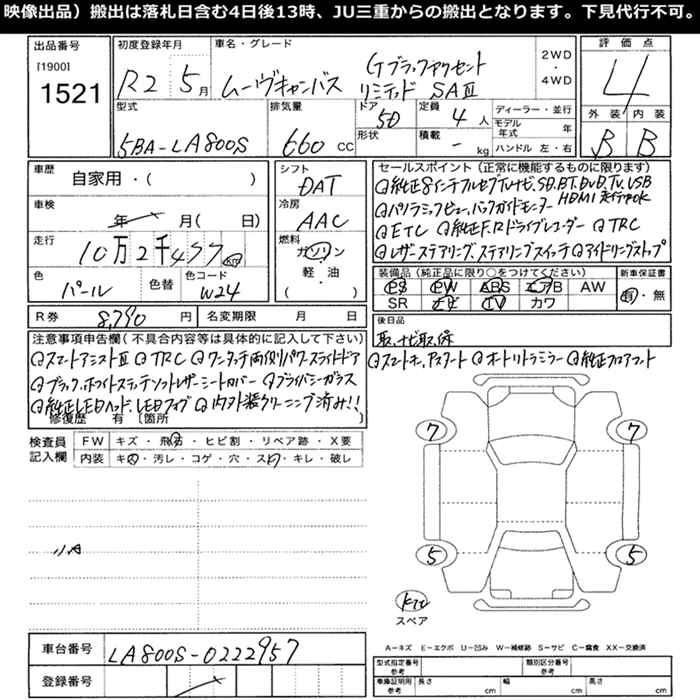 映像出品）搬出は落札日含む4日後13時、JU三重からの搬出となります。下見代行不可。
出品番号 [1900] 1521
初度登録年月 R2年 5月
車名・グレード ムーヴキャンバス Gブラックアクセント リミテッド SAⅢ
2WD ・ 4WD
評価点 4
外装 B 内装 B
型式 5BA-LA800S
排気量 660 CC
ドア 5D
形状
定員 4 人
積載 - kg
ディーラー・並行
モデル年式 年
ハンドル 左・右
車歴 自家用・( )
車検 年 月( 日)
走行 10万2千477 km
色 パール 色替 色コード W24
シフト DAT
冷房 AAC
燃料 ガソリン・軽・油 ( )
セールスポイント（正常に機能するものに限ります）
◎純正8インチフルセグTVナビ、SD.BT.DVD.TV.USB
HDMI 走行中OK
◎パノラミックビュー、バックガイドモニター
◎ETC ◎純正F.Rドライブレコーダー ◎TRC
◎レザーステアリング、ステアリングスイッチ ◎アイドリングストップ
装備品（純正品に限り○をつけてください）
PS PW ABS エアB AW
SR ナビ TV カワ
新車保証書 有・無
R券 8,790 円 名変期限 月 日
後日品 取、ナビ取、保
注意事項申告欄（不具合内容等は具体的に記入して下さい）
◎スマートアシストⅢ ◎TRC ◎ワンタッチ両側パワースライドドア ◎スマートキー、プッシュスタート ◎オートリトラミラー ◎純正フロアマット
◎ブラック、ホワイトステッチソフトレザー調シートカバー ◎プライバシーガラス
◎純正LEDヘッド、LEDフォグ ◎内外装クリーニング済み!!
修復歴 有 〔箇所 〕
検査員記入欄
FW キズ・飛石・ヒビ割・リペア跡・X要
内装 キズ・汚レ・コゲ・穴・スレ・キレ・破レ
7 7
5 5
スペア
A－キズ E－エクボ U－凹み W－補修跡 S－サビ C－腐食 XX－交換済
車台番号 LA800S-0222957
登録番号
型式指定番号 参考 類別区分番号 参考
車庫証明用 参考 長さ cm 幅 cm 高さ cm